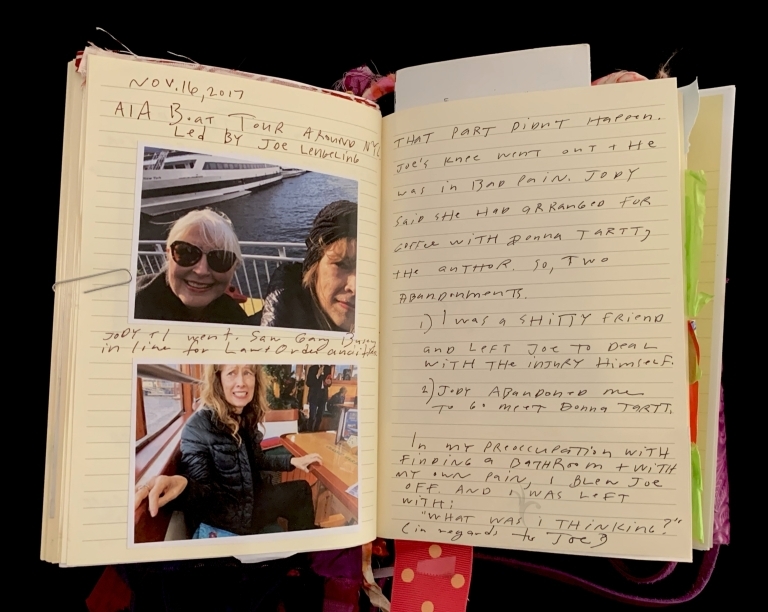 NOV. 16, 2017
AIA BOAT TOUR AROUND NYC
LED BY JOE LENGELING
JODY + I went. Saw Gary Busey
in line for Law + Order audition
THAT PART DIDN'T HAPPEN.
JOE'S KNEE WENT OUT + HE
WAS IN BAD PAIN. JODY
SAID SHE HAD ARRANGED FOR
COFFEE WITH DONNA TARTT,
THE AUTHOR. SO, TWO
ABANDONMENTS.
1) I WAS A SHITTY FRIEND
AND LEFT JOE TO DEAL
WITH THE INJURY HIMSELF.
2) JODY ABANDONED ME
TO GO MEET DONNA TARTT.
IN MY PREOCCUPATION WITH
FINDING A BATHROOM + WITH
MY OWN PAIN, I BLEW JOE
OFF. AND I WAS LEFT
WITH:
"WHAT WAS I THINKING?"
(in regards to JOE)